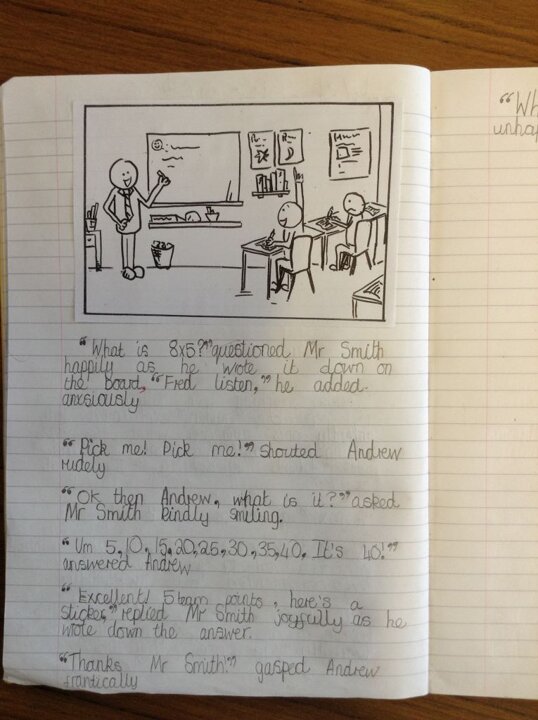 "What is 8x5?" questioned Mr Smith
happily as he wrote it down on
the board, "Fred listen," he added
anxsiously
"Pick me! Pick me!" shouted Andrew
rudely
"Ok then Andrew, what is it?" asked
Mr Smith kindly smiling.
"Um 5,10,15,20,25,30,35,40, It's 40!"
answered Andrew
"Excellent! 5 team points, here's a
sticker," replied Mr Smith joyfully as he
wrote down the answer.
"Thanks Mr Smith!" gasped Andrew
frantically
"Wh
unhap